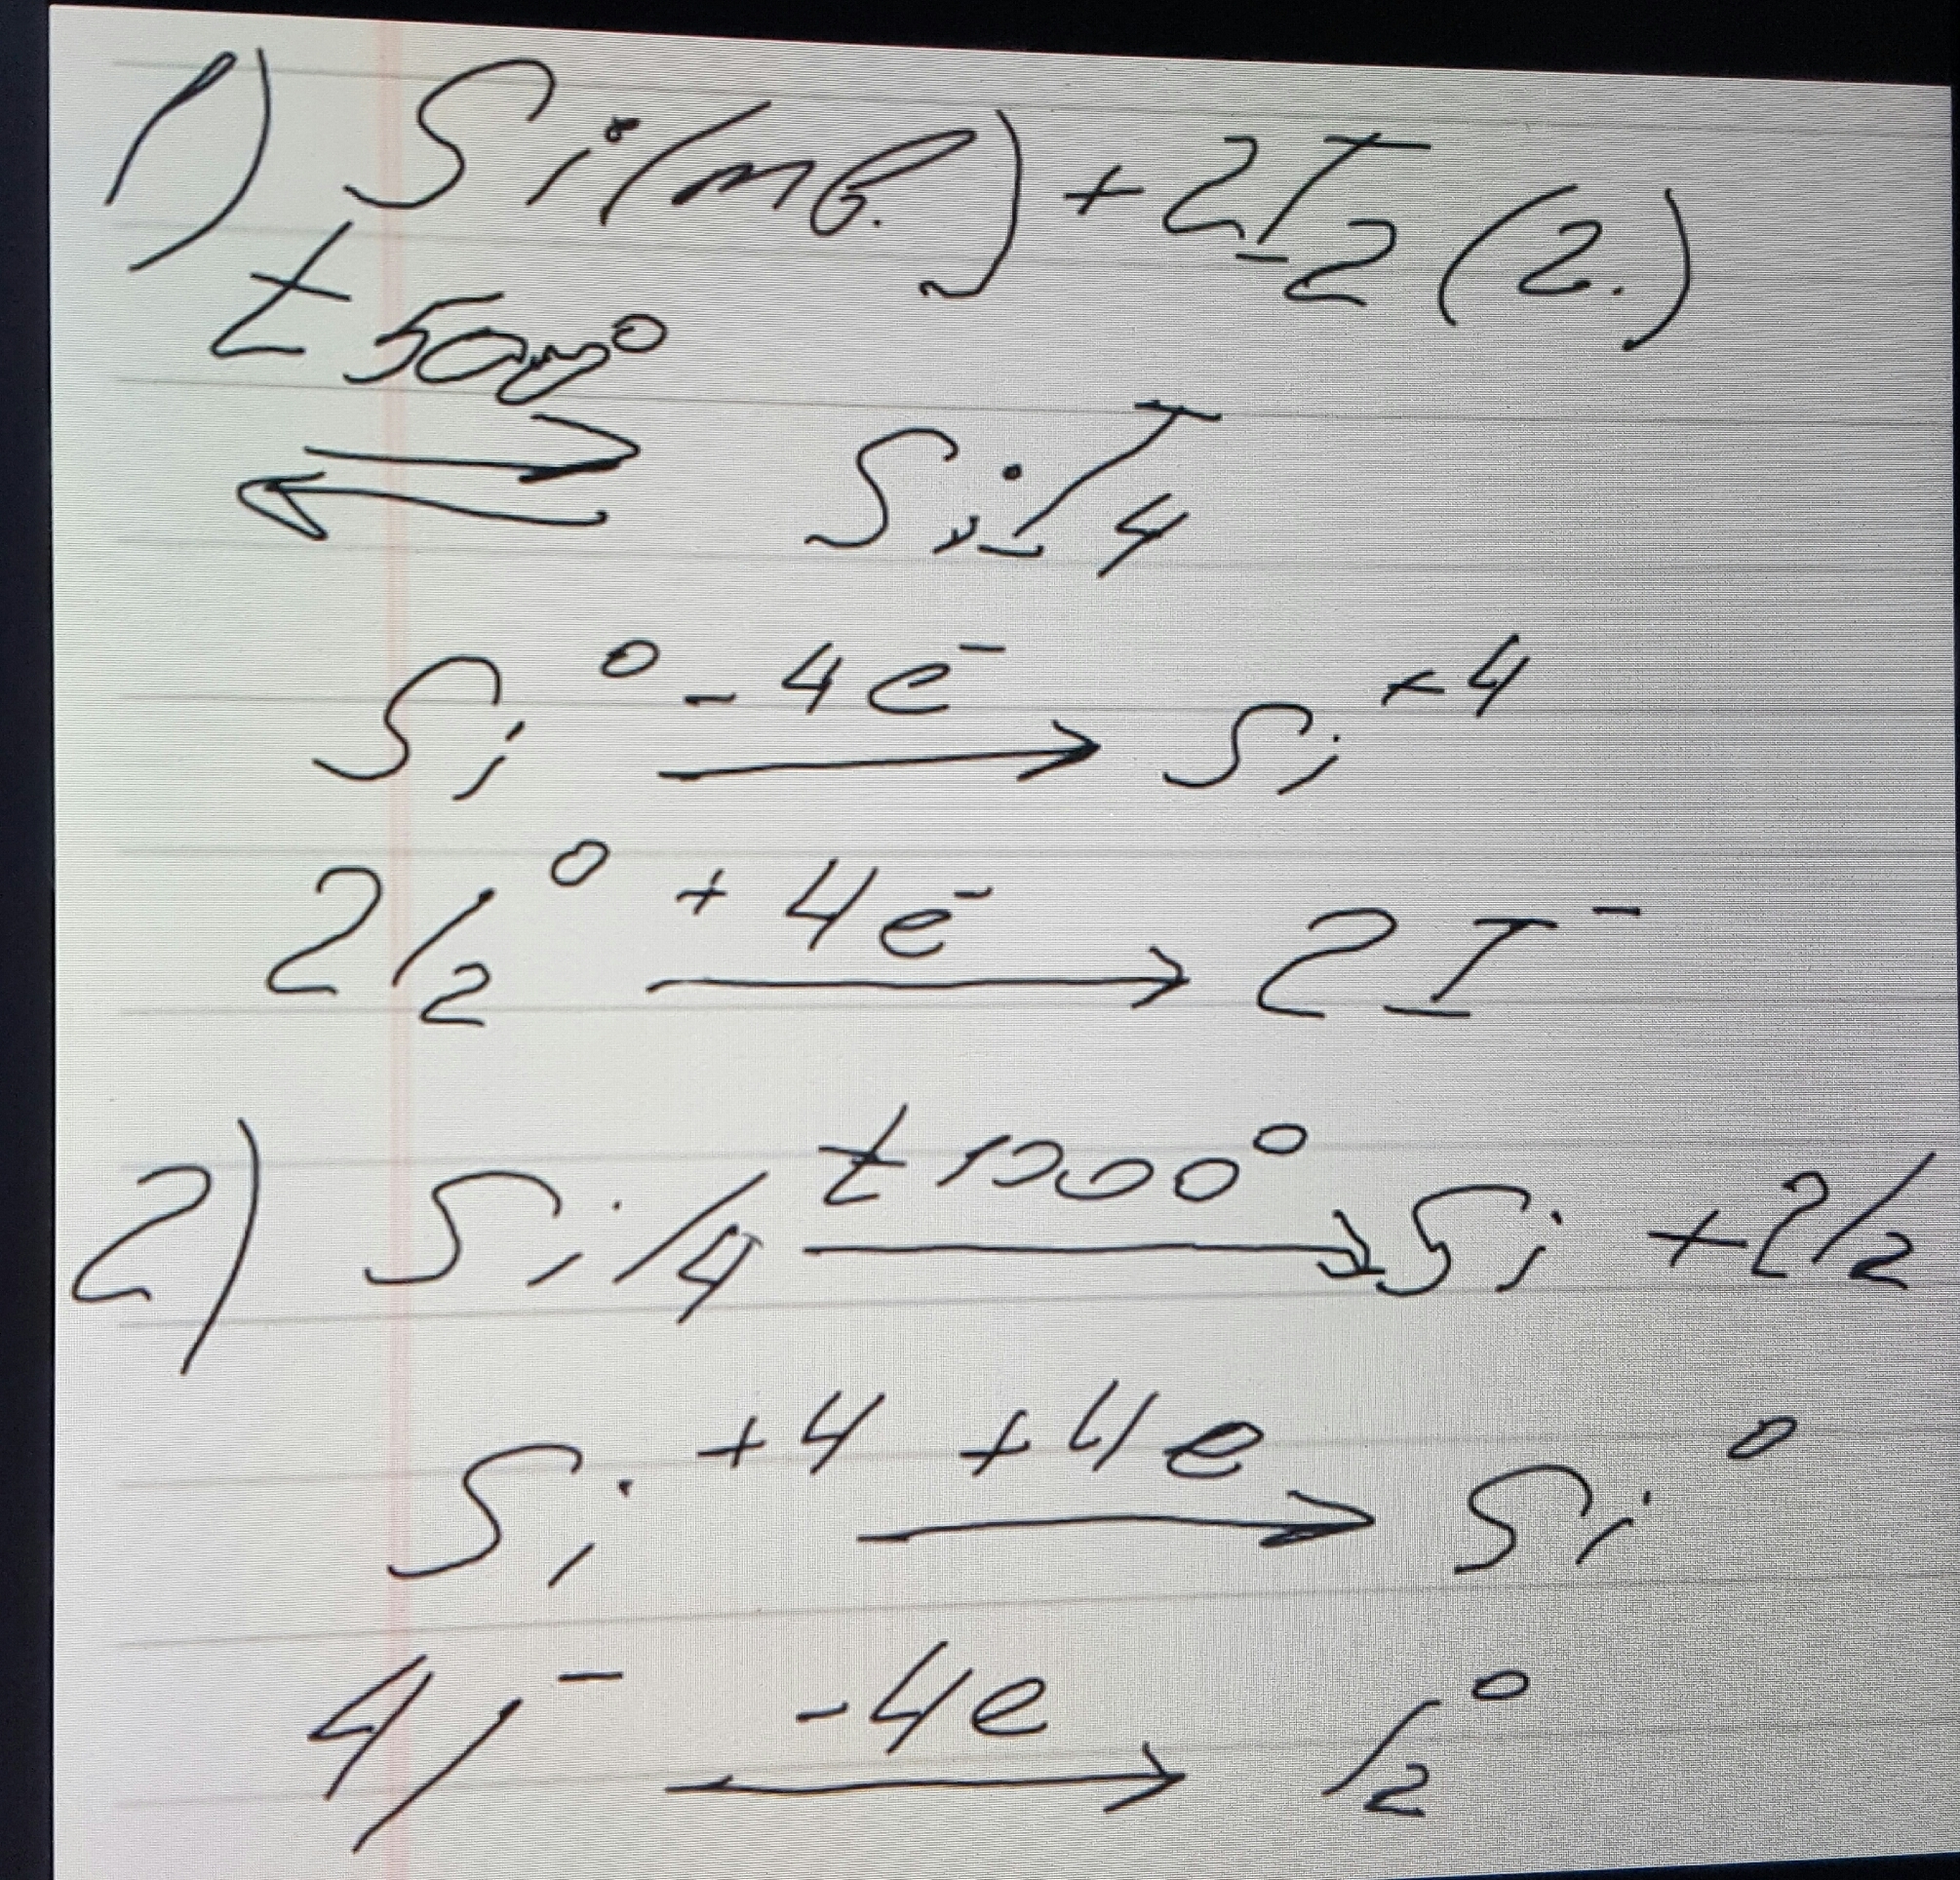 1) Si (тв.) + 2I₂ (г.)
t 500°
⇄ SiI₄
Si⁰ - 4e⁻ → Si⁺⁴
2I₂⁰ + 4e⁻ → 2I⁻
2) SiI₄ t 1000° → Si + 2I₂
Si⁺⁴ +4e → Si⁰
4I⁻ -4e → I₂⁰